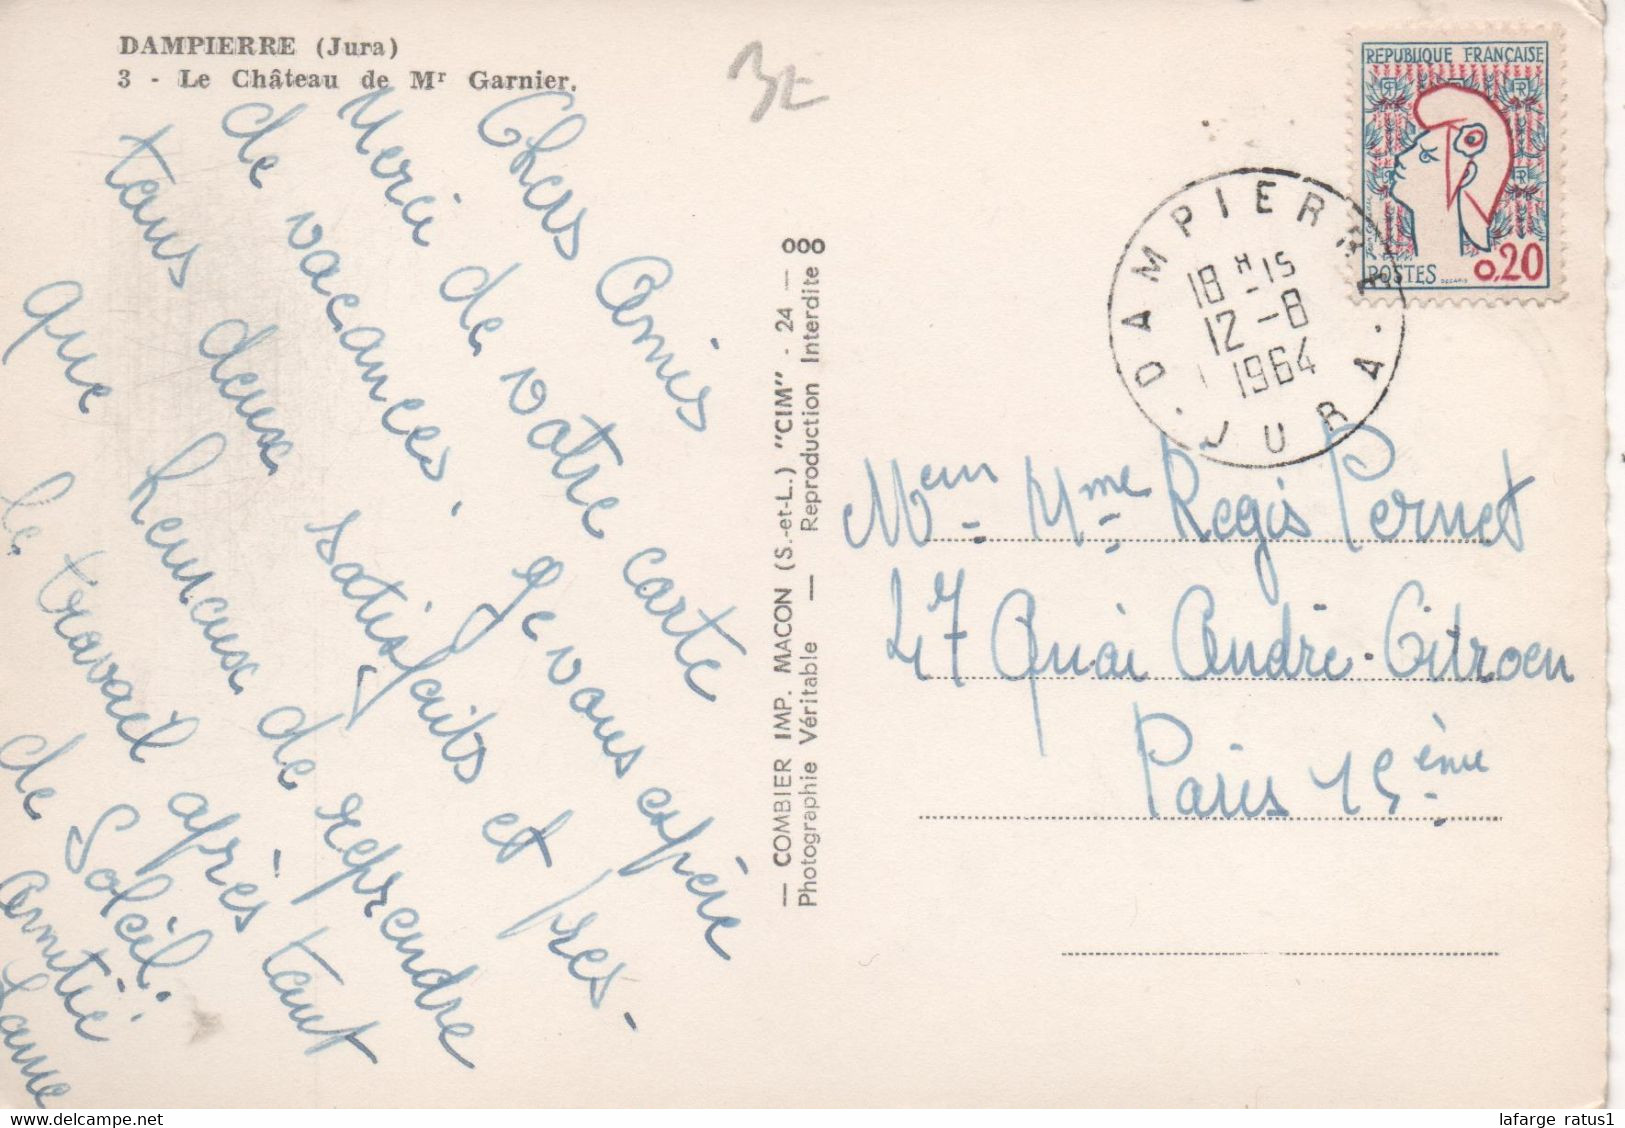 DAMPIERRE (Jura)
3 - Le Château de Mr Garnier.
Chers Amis
Merci de votre carte
de vacances. Je vous espère
tous deux satisfaits et pres-
que heureux de reprendre
le travail après tant
de Soleil.
Amitié
— COMBIER IMP. MACON (S.-et-L.) "CIM" - 24 — 000
Photographie Véritable — Reproduction Interdite
REPUBLIQUE FRANÇAISE
POSTES 0,20
DAMPIERRE
18 H 15
12 - 8
1964
JURA
Mme Regis Pernet
47 Quai André-Citroen
Paris 15ème
delcampe.net
lafarge_ratus1